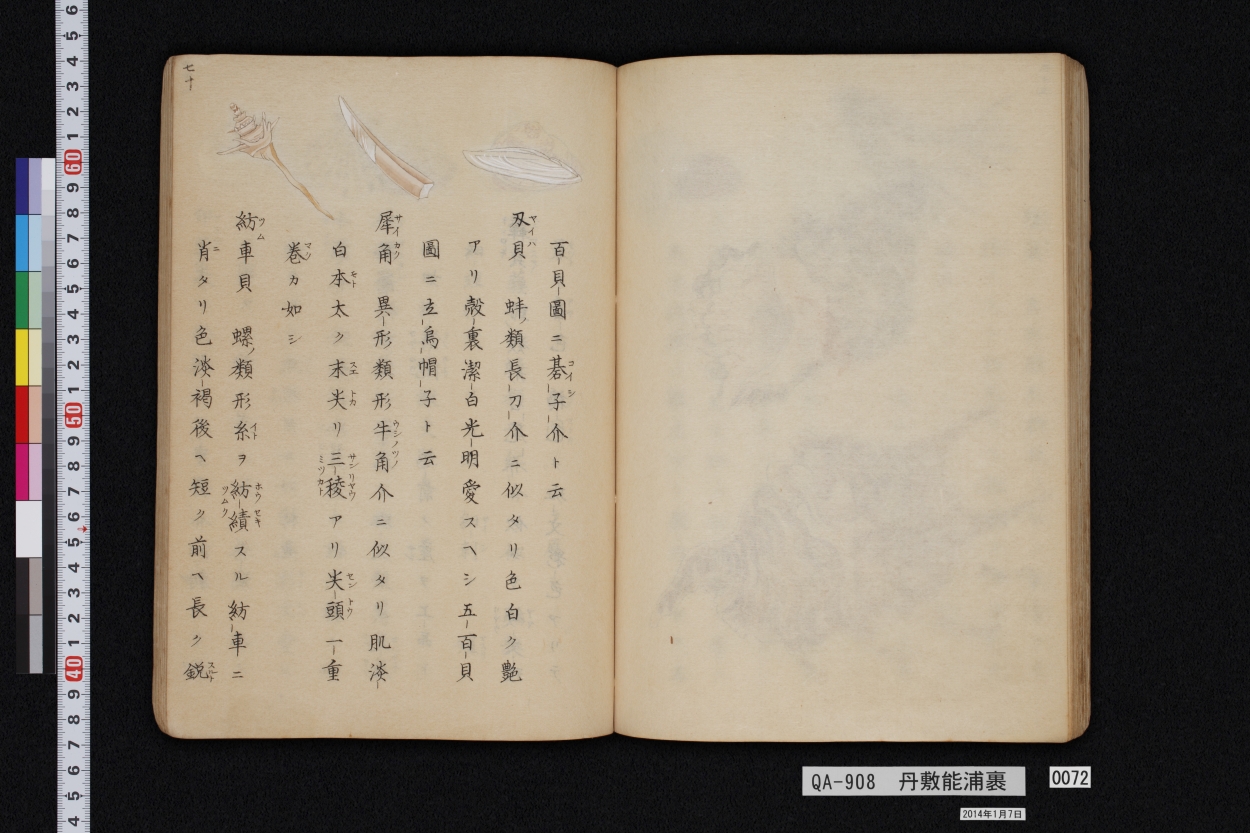 七十
百貝圖ニ碁子介ト云
刄貝 蚌類長刀介ニ似タリ色白ク艶
アリ殻裏潔白光明愛スヘシ五百貝
圖ニ立烏帽子ト云
犀角 異形類形牛角介ニ似タリ肌淡
白本太ク末尖リ三稜アリ尖頭一重
巻カ如シ
紡車貝 螺類形糸ヲ紡績スル紡車ニ
肖タリ色淡褐後ヘ短ク前ヘ長ク鋭
QA-908 丹敷能浦裹
0072
2014年1月7日